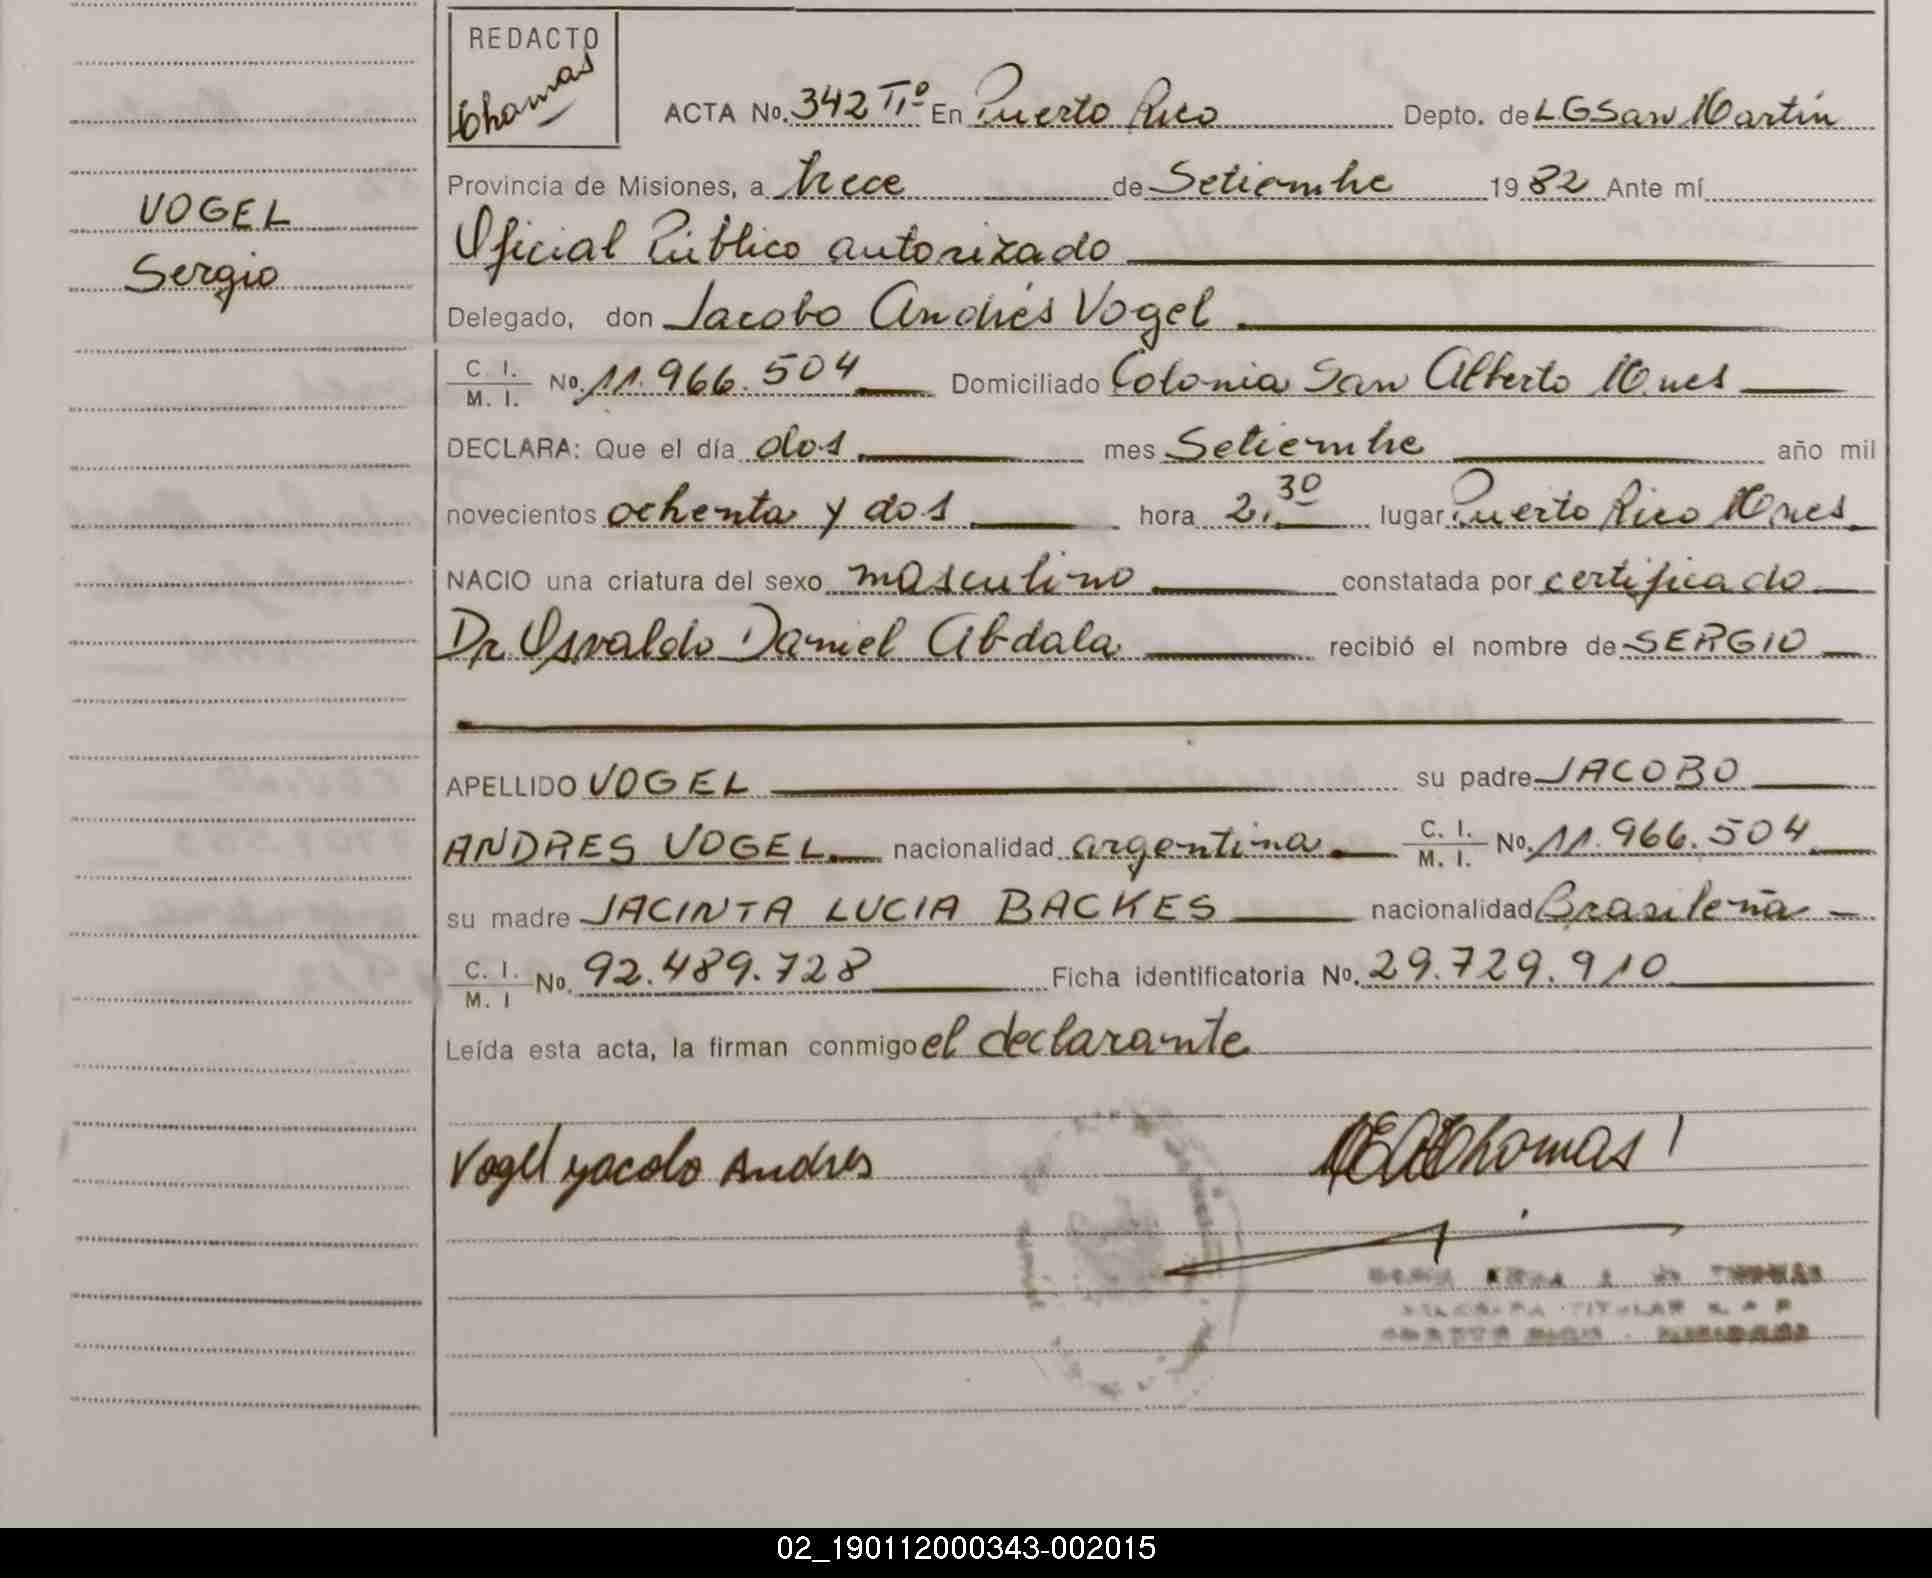 REDACTO
Thomas
ACTA No. 342 Tº1º En Puerto Rico Depto. de L G San Martín
Provincia de Misiones, a trece de Setiembre 1982 Ante mí
VOGEL
Sergio
Oficial Público autorizado
Delegado, don Jacobo Andrés Vogel
C. I. / M. I. No. 11.966.504 Domiciliado Colonia San Alberto Mnes
DECLARA: Que el día dos mes Setiembre año mil
novecientos ochenta y dos hora 2,30 lugar Puerto Rico Mnes
NACIO una criatura del sexo masculino constatada por certificado
Dr Osvaldo Daniel Abdala recibió el nombre de SERGIO
APELLIDO VOGEL su padre JACOBO
ANDRES VOGEL nacionalidad argentina C. I. / M. I. No. 11.966.504
su madre JACINTA LUCIA BACKES nacionalidad Brasileña
C. I. / M. I No. 92.489.728 Ficha identificatoria No. 29.729.910
Leída esta acta, la firman conmigo el declarante
Vogel yacobo Andres
Thomas
TITULAR
02_190112000343-002015